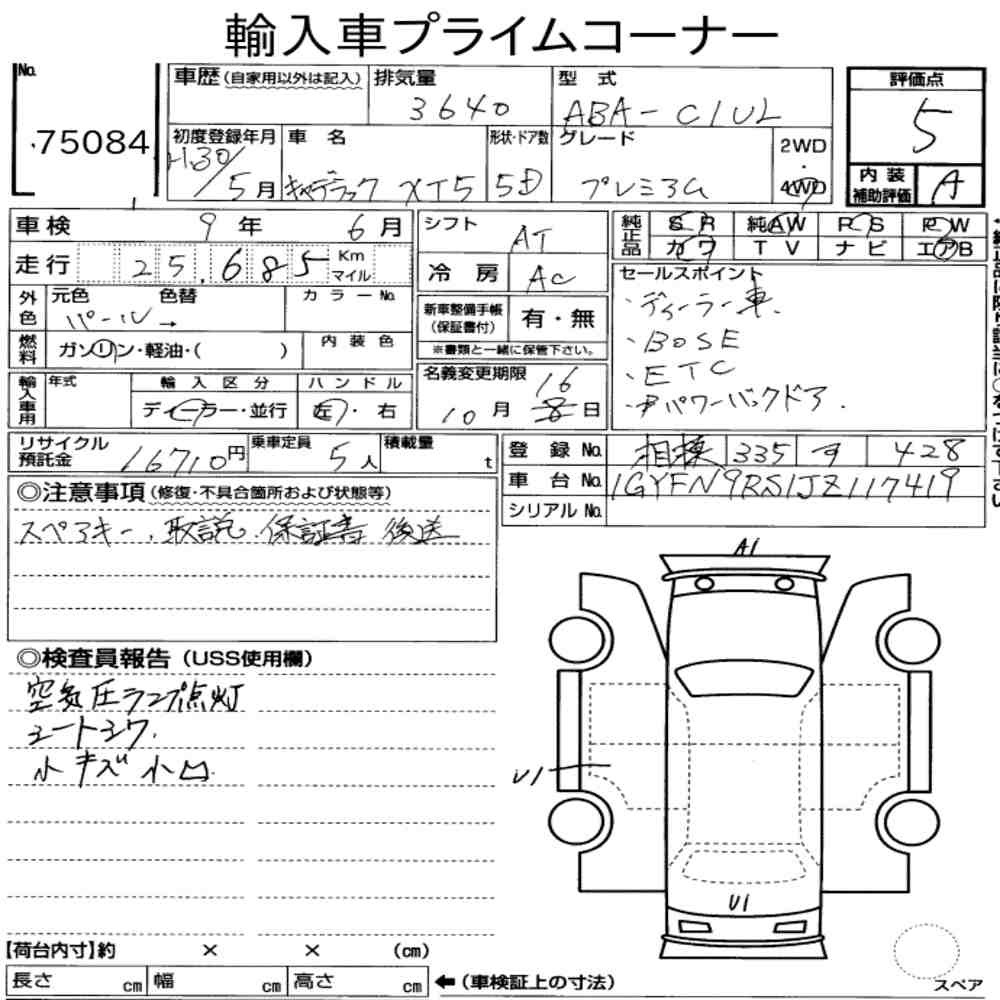 輸入車プライムコーナー
No.
75084
車歴(自家用以外は記入)
排気量
3640
型 式
ABA-C1UL
評価点
5
初度登録年月
H30/5月
車 名
キャデラック XT5
形状・ドア数
5D
グレード
プレミアム
2WD
・
4WD
内 装
補助評価
A
車検
9 年 6 月
シフト
AT
純正品
SR 純AW PS PW
カワ TV ナビ エアB
走行
25,685
Km
マイル
冷 房
AC
セールスポイント
・ディーラー車.
・BOSE
・ETC
・パワーバックドア.
外色
元色 色替
パール→
カラーNo.
新車整備手帳
(保証書付)
有・無
※書類と一緒に保管下さい。
燃料
ガソリン・軽油・( )
内装色
輸入車用
年式
輸入区分
ディーラー・並行
ハンドル
左・右
名義変更期限
10月 16日
リサイクル
預託金
16710円
乗車定員
5人
積載量
t
登 録 No.
相模 335 す 428
車 台 No.
1GYFN9RS1JZ117419
シリアル No.
◎注意事項(修復・不具合箇所および状態等)
スペアキー、取説、保証書 後送
◎検査員報告(USS使用欄)
空気圧ランプ点灯
シートシワ.
小キズ 小凹
A1
U1
U1
【荷台内寸】約 × × (cm)
長さ cm 幅 cm 高さ cm
←(車検証上の寸法)
スペア